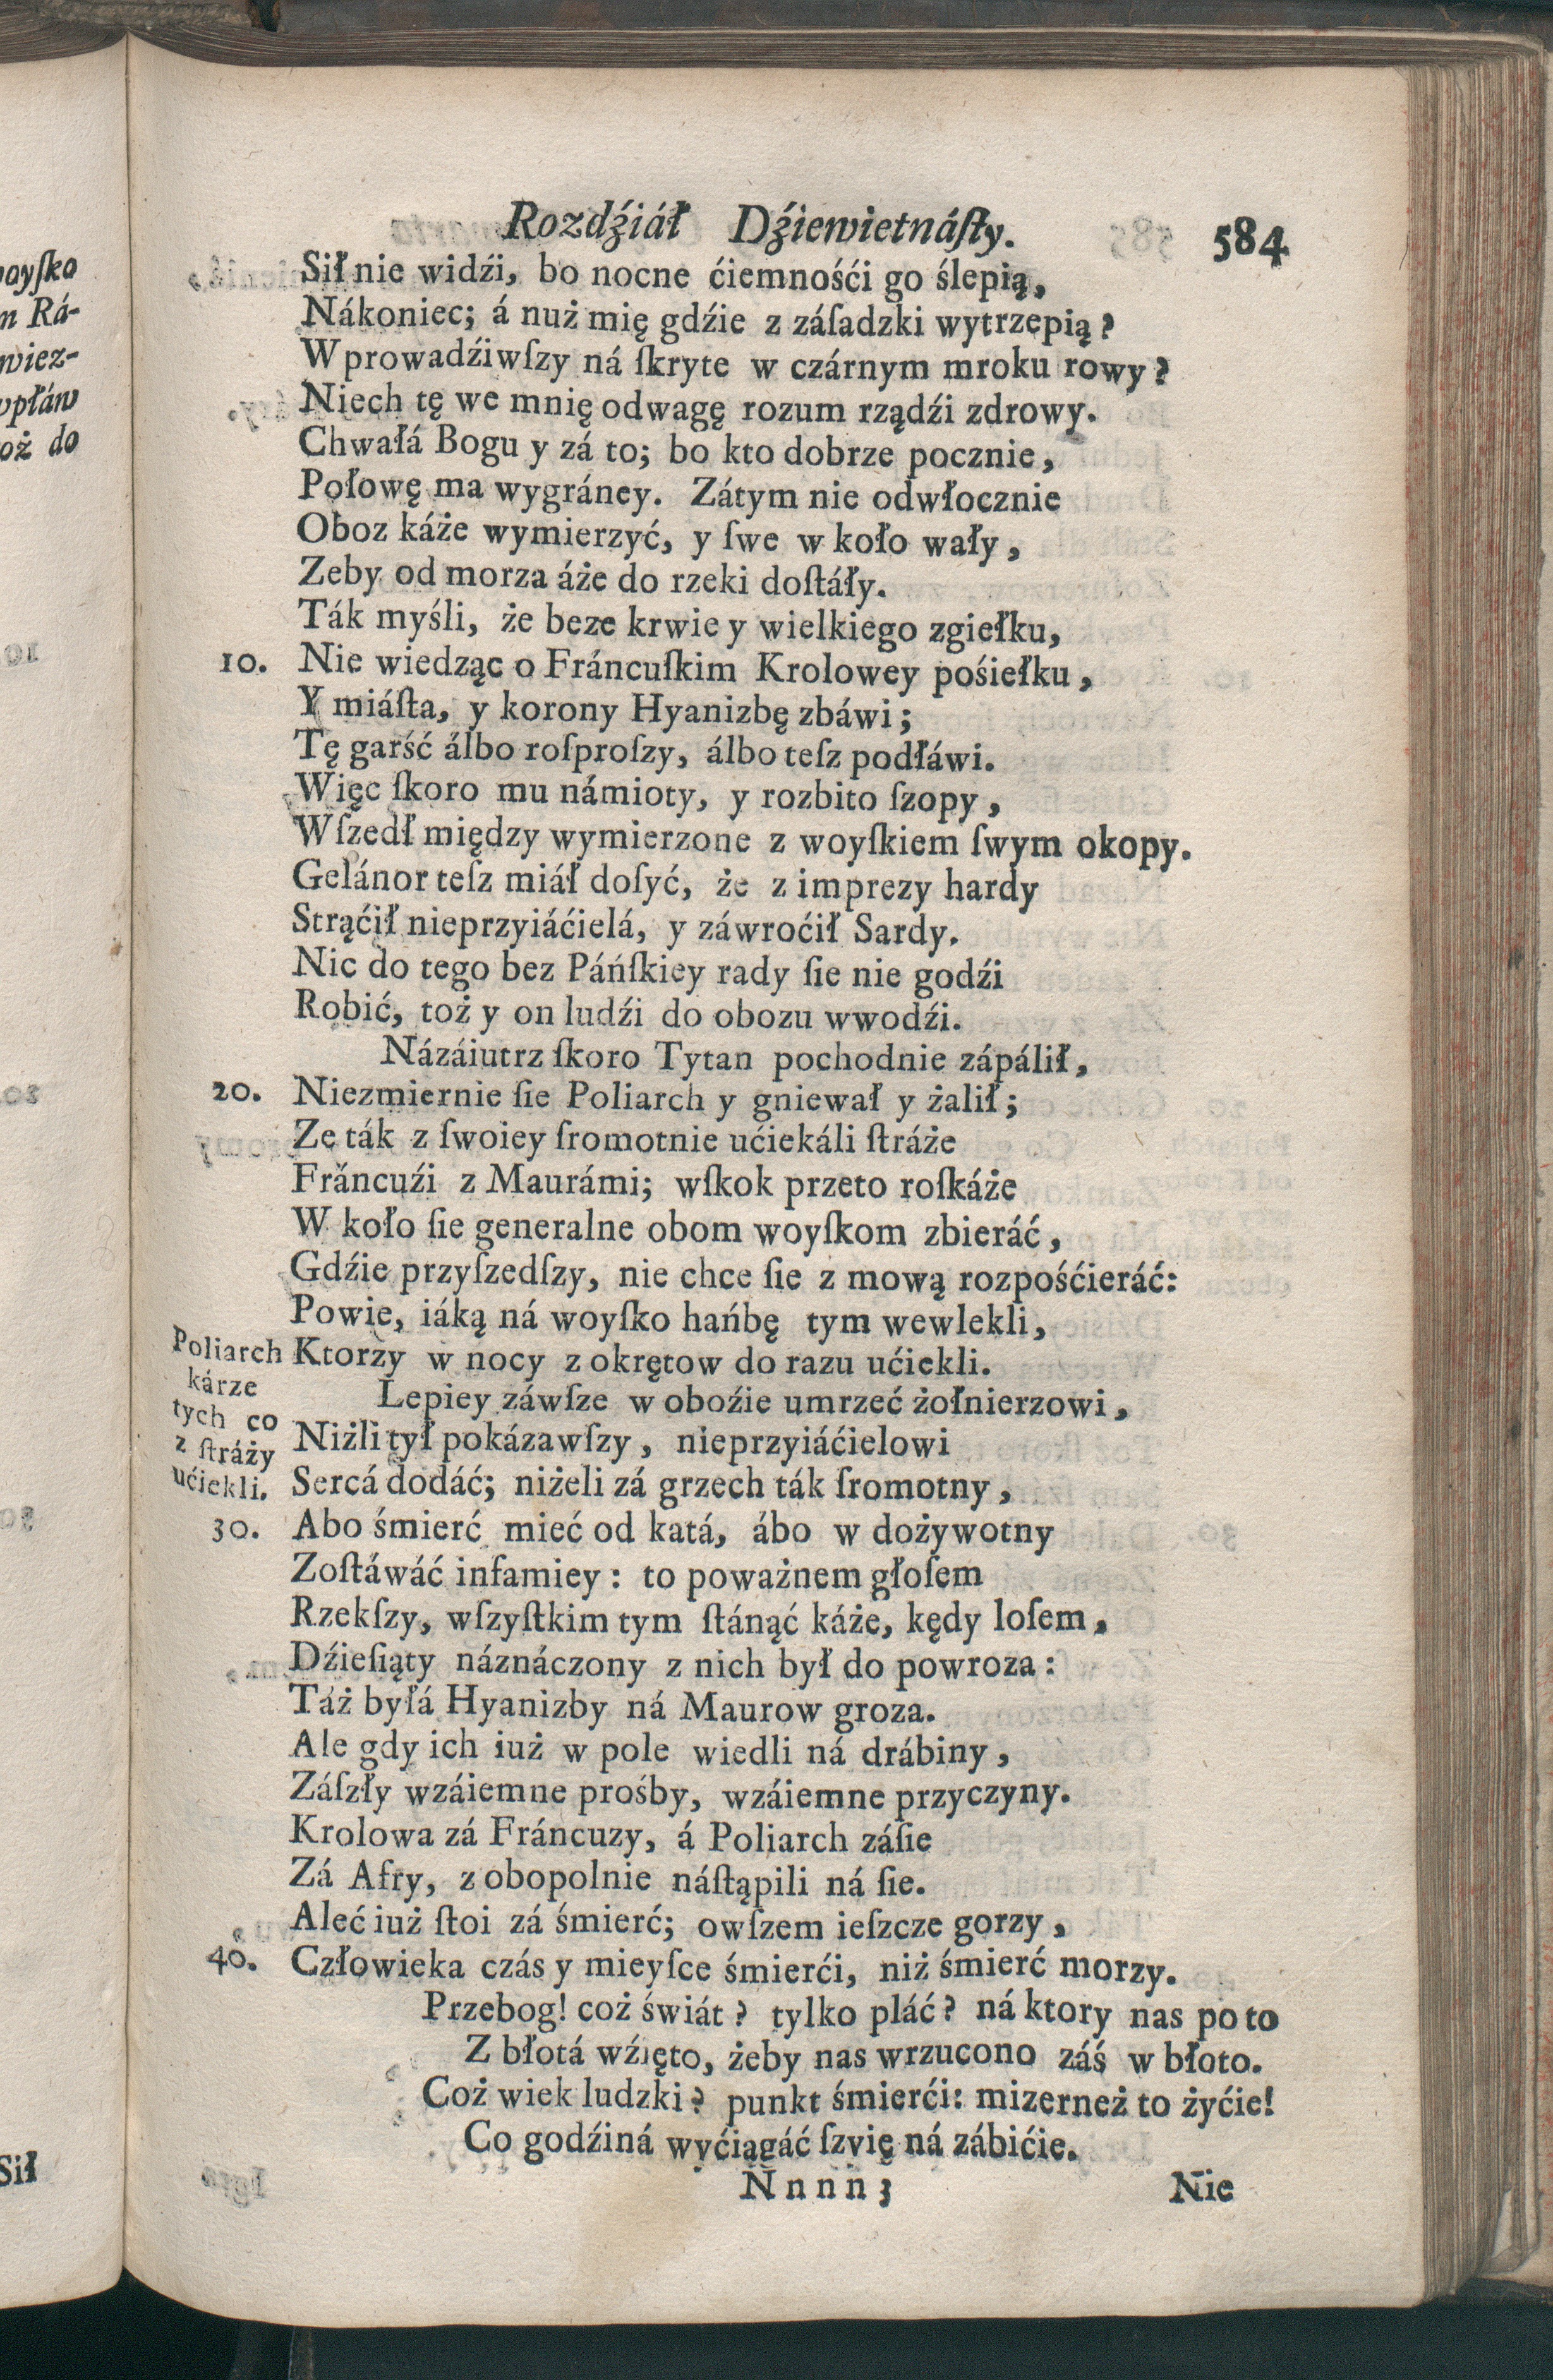 Rozdźiáł Dźiewietnáſty. 584
Sił nie widźi, bo nocne ćiemnośći go ślepią,
Nákoniec; á nuż mię gdźie z záſadzki wytrzepią?
Wprowadźiwſzy ná ſkryte w czárnym mroku rowy?
Niech tę we mnię odwagę rozum rządźi zdrowy.
Chwałá Bogu y zá to; bo kto dobrze pocznie,
Połowę ma wygráney. Zátym nie odwłocznie
Oboz káże wymierzyć, y ſwe w koło wały,
Zeby od morza áże do rzeki doſtáły.
Ták myśli, że beze krwie y wielkiego zgiełku,
10. Nie wiedząc o Fráncuſkim Krolowey pośiełku,
Y miáſta, y korony Hyanizbę zbáwi;
Tę garść álbo roſproſzy, álbo teſz podłáwi.
Więc ſkoro mu námioty, y rozbito ſzopy,
Wſzedł między wymierzone z woyſkiem ſwym okopy.
Gelánor teſz miáł doſyć, że z imprezy hardy
Strąćił nieprzyiáćielá, y záwroćił Sardy.
Nic do tego bez Páńſkiey rady ſie nie godźi
Robić, toż y on ludźi do obozu wwodźi.
Názáiutrz ſkoro Tytan pochodnie zápálił,
20. Niezmiernie ſie Poliarch y gniewał y żalił;
Ze ták z ſwoiey ſromotnie ućiekáli ſtráże
Fráncuźi z Maurámi; wſkok przeto roſkáże
W koło ſie generalne obom woyſkom zbieráć,
Gdźie przyſzedſzy, nie chce ſie z mową rozpośćieráć:
Powie, iáką ná woyſko hańbę tym wewlekli,
Ktorzy w nocy z okrętow do razu ućiekli.
Poliarch
kárze
tych co
z ſtráży
ućiekli.
Lepiey záwſze w oboźie umrzeć żołnierzowi,
Niżli tył pokázawſzy, nieprzyiáćielowi
Sercá dodáć; niżeli zá grzech ták ſromotny,
30. Abo śmierć mieć od katá, ábo w dożywotny
Zoſtáwáć infamiey: to poważnem głoſem
Rzekſzy, wſzyſtkim tym ſtánąć káże, kędy loſem,
Dźieſiąty náznáczony z nich był do powroza:
Táż byłá Hyanizby ná Maurow groza.
Ale gdy ich iuż w pole wiedli ná drábiny,
Záſzły wzáiemne prośby, wzáiemne przyczyny.
Krolowa zá Fráncuzy, á Poliarch záſie
Zá Afry, z obopolnie náſtąpili ná ſie.
Aleć iuż ſtoi zá śmierć; owſzem ieſzcze gorzy,
40. Człowieka czás y mieyſce śmierći, niż śmierć morzy.
Przebog! coż świát? tylko pláć? ná ktory nas po to
Z błotá wźięto, żeby nas wrzucono záś w błoto.
Coż wiek ludzki? punkt śmierći: mizerneż to żyćie!
Co godźiná wyćiągáć ſzyię ná zábićie.
Nnnn3 Nie
oayſko
m Rá-
wiez-
wpłáw
oż do
Sił